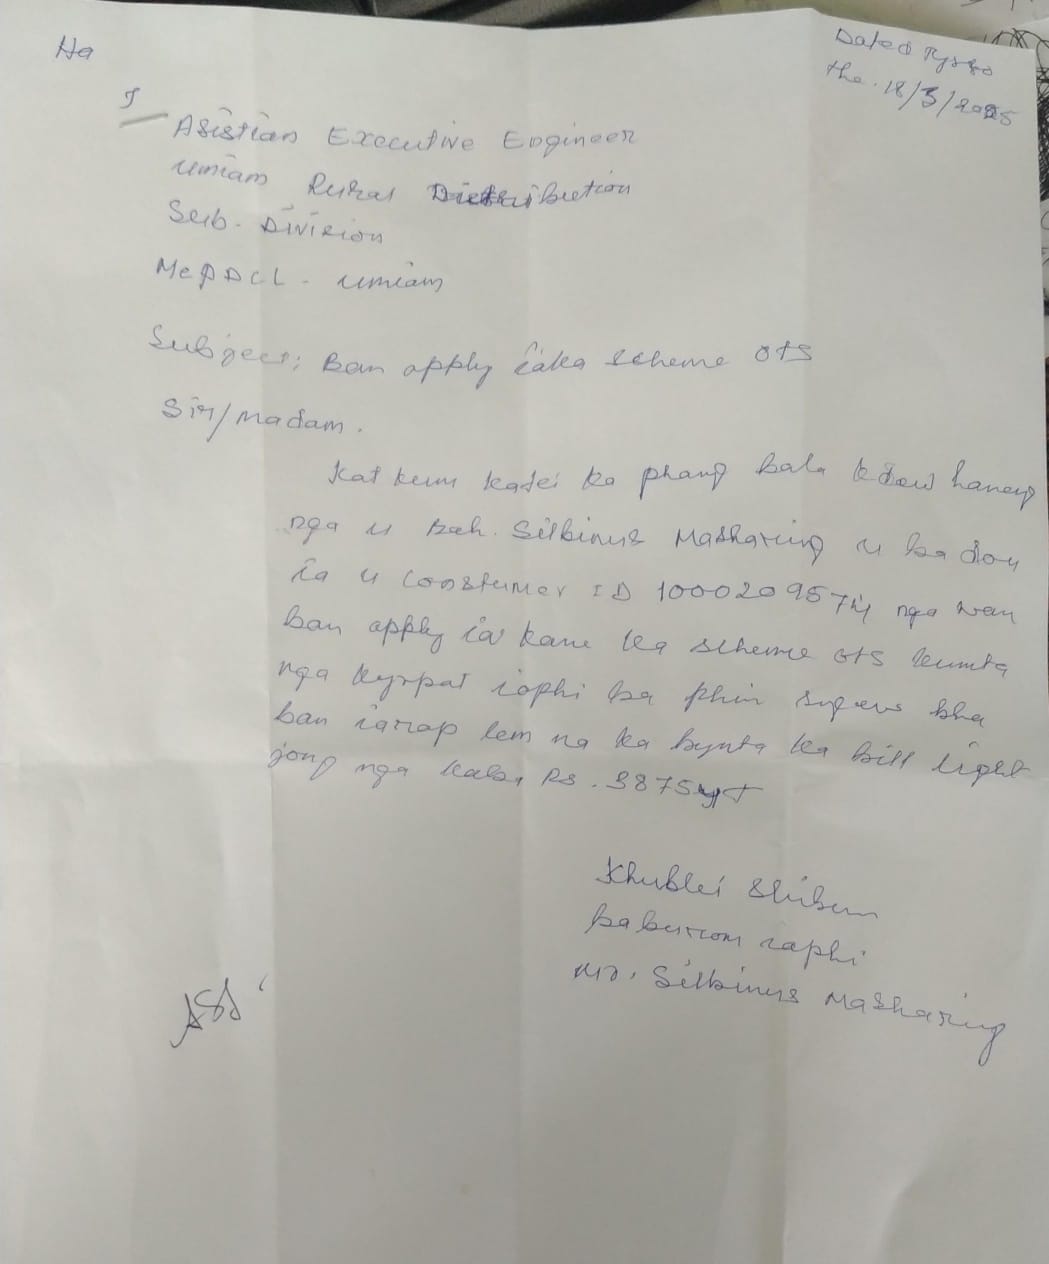 Ha
Dated Tyrso
the. 18/3/2025
Asistian Executive Engineer
Umiam Rural Distribution
Sub. Division
MePDCL - Umiam
Subject; Ban apply ïaka scheme OTS
Sir/Madam.
Kat kum katei ka phang bala kdew haneng
nga u Bah. Silbinus Masharing u ba don
ïa u Constumer ID 10002095714 nga wan
ban apply ïa kane ka scheme OTS kumta
nga kyrpat ïaphi ba phin sngew bha
ban ïarap lem na ka bynta ka bill light
jong nga kaba Rs. 3875
Khublei Shibun
baburom ïaphi
Mr. Silbinus Masharing